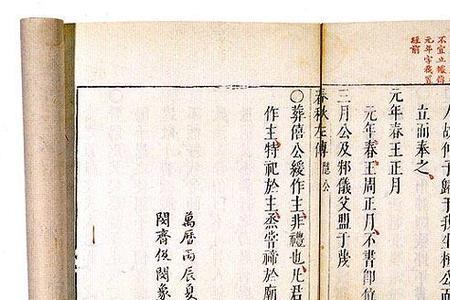 不宜立據傳
元年字截置
經前
人故仲子歸于我生桓公而
立而奉之
元年春王正月
元年春王周正月不書即
三月公及邾儀父盟于蔑
春秋左傳 隱公
〇葬僖公緩作主非禮也凡君
作主特祀於主烝嘗禘於廟
萬曆丙辰夏
閔齊伋閔象